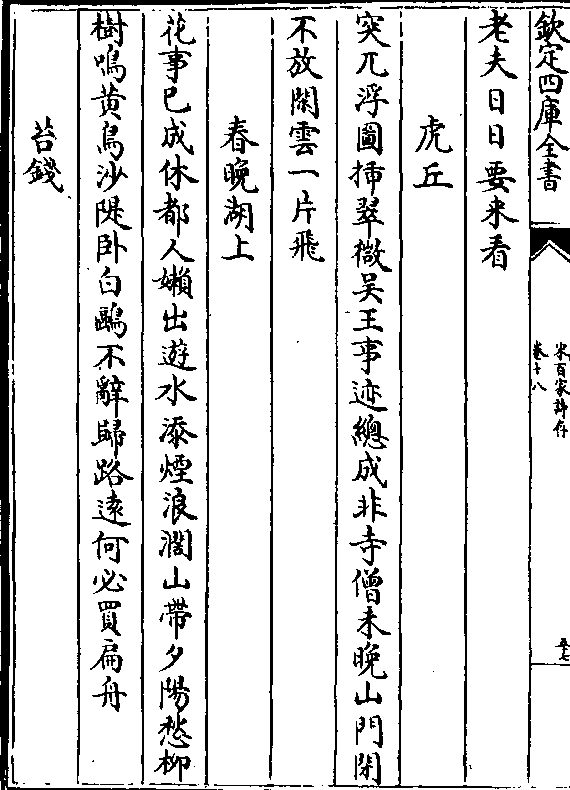 欽定四庫全書
宋百家詩存
卷十八
五七
老夫日日要来看
虎丘
突兀浮圖揷翠微吴王事迹總成非寺僧未晚山門閉
不放閑雲一片飛
春晚湖上
花事已成休都人嬾出遊水添煙浪濶山帶夕陽愁柳
樹鳴黄鳥沙隄卧白鷗不辭歸路逺何必買扁舟
苔錢